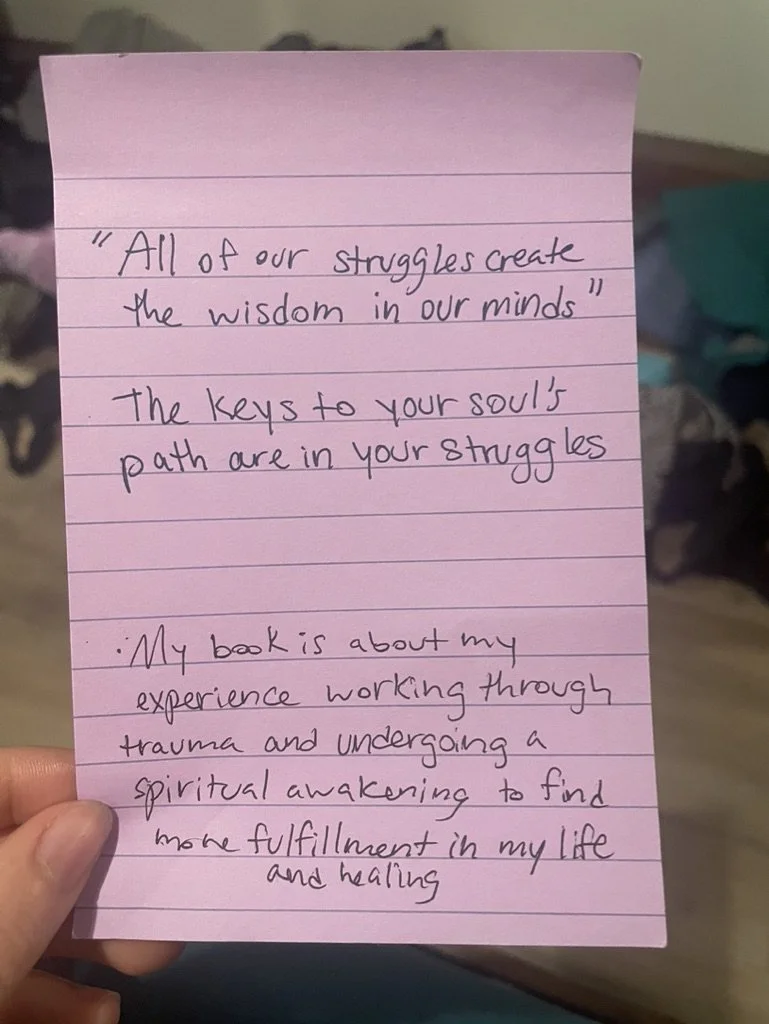 "All of our struggles create
the wisdom in our minds"
The keys to your soul's
path are in your struggles
·My book is about my
experience working through
trauma and undergoing a
spiritual awakening to find
more fulfillment in my life
and healing